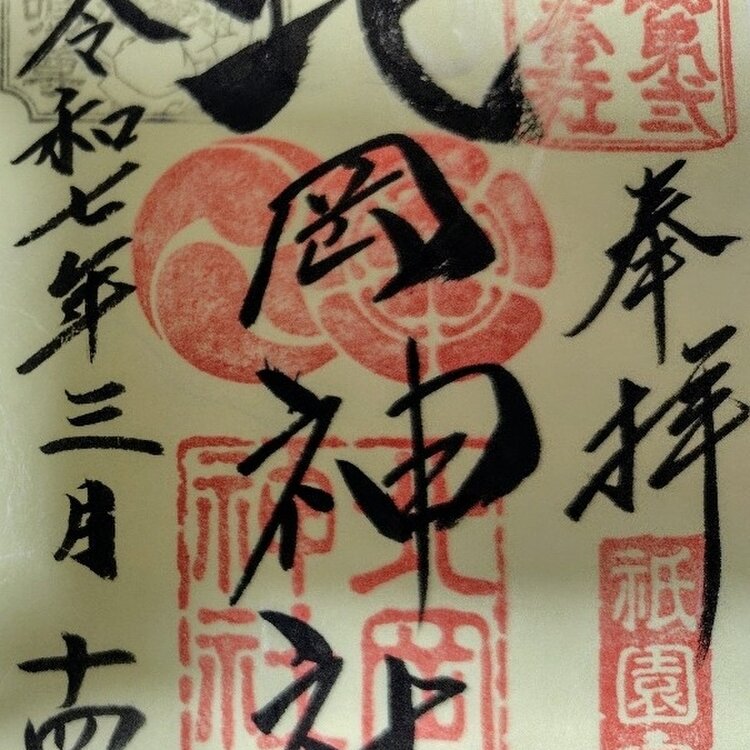 奉拝
北岡神社
令和七年三月十四
北岡神社
祇園